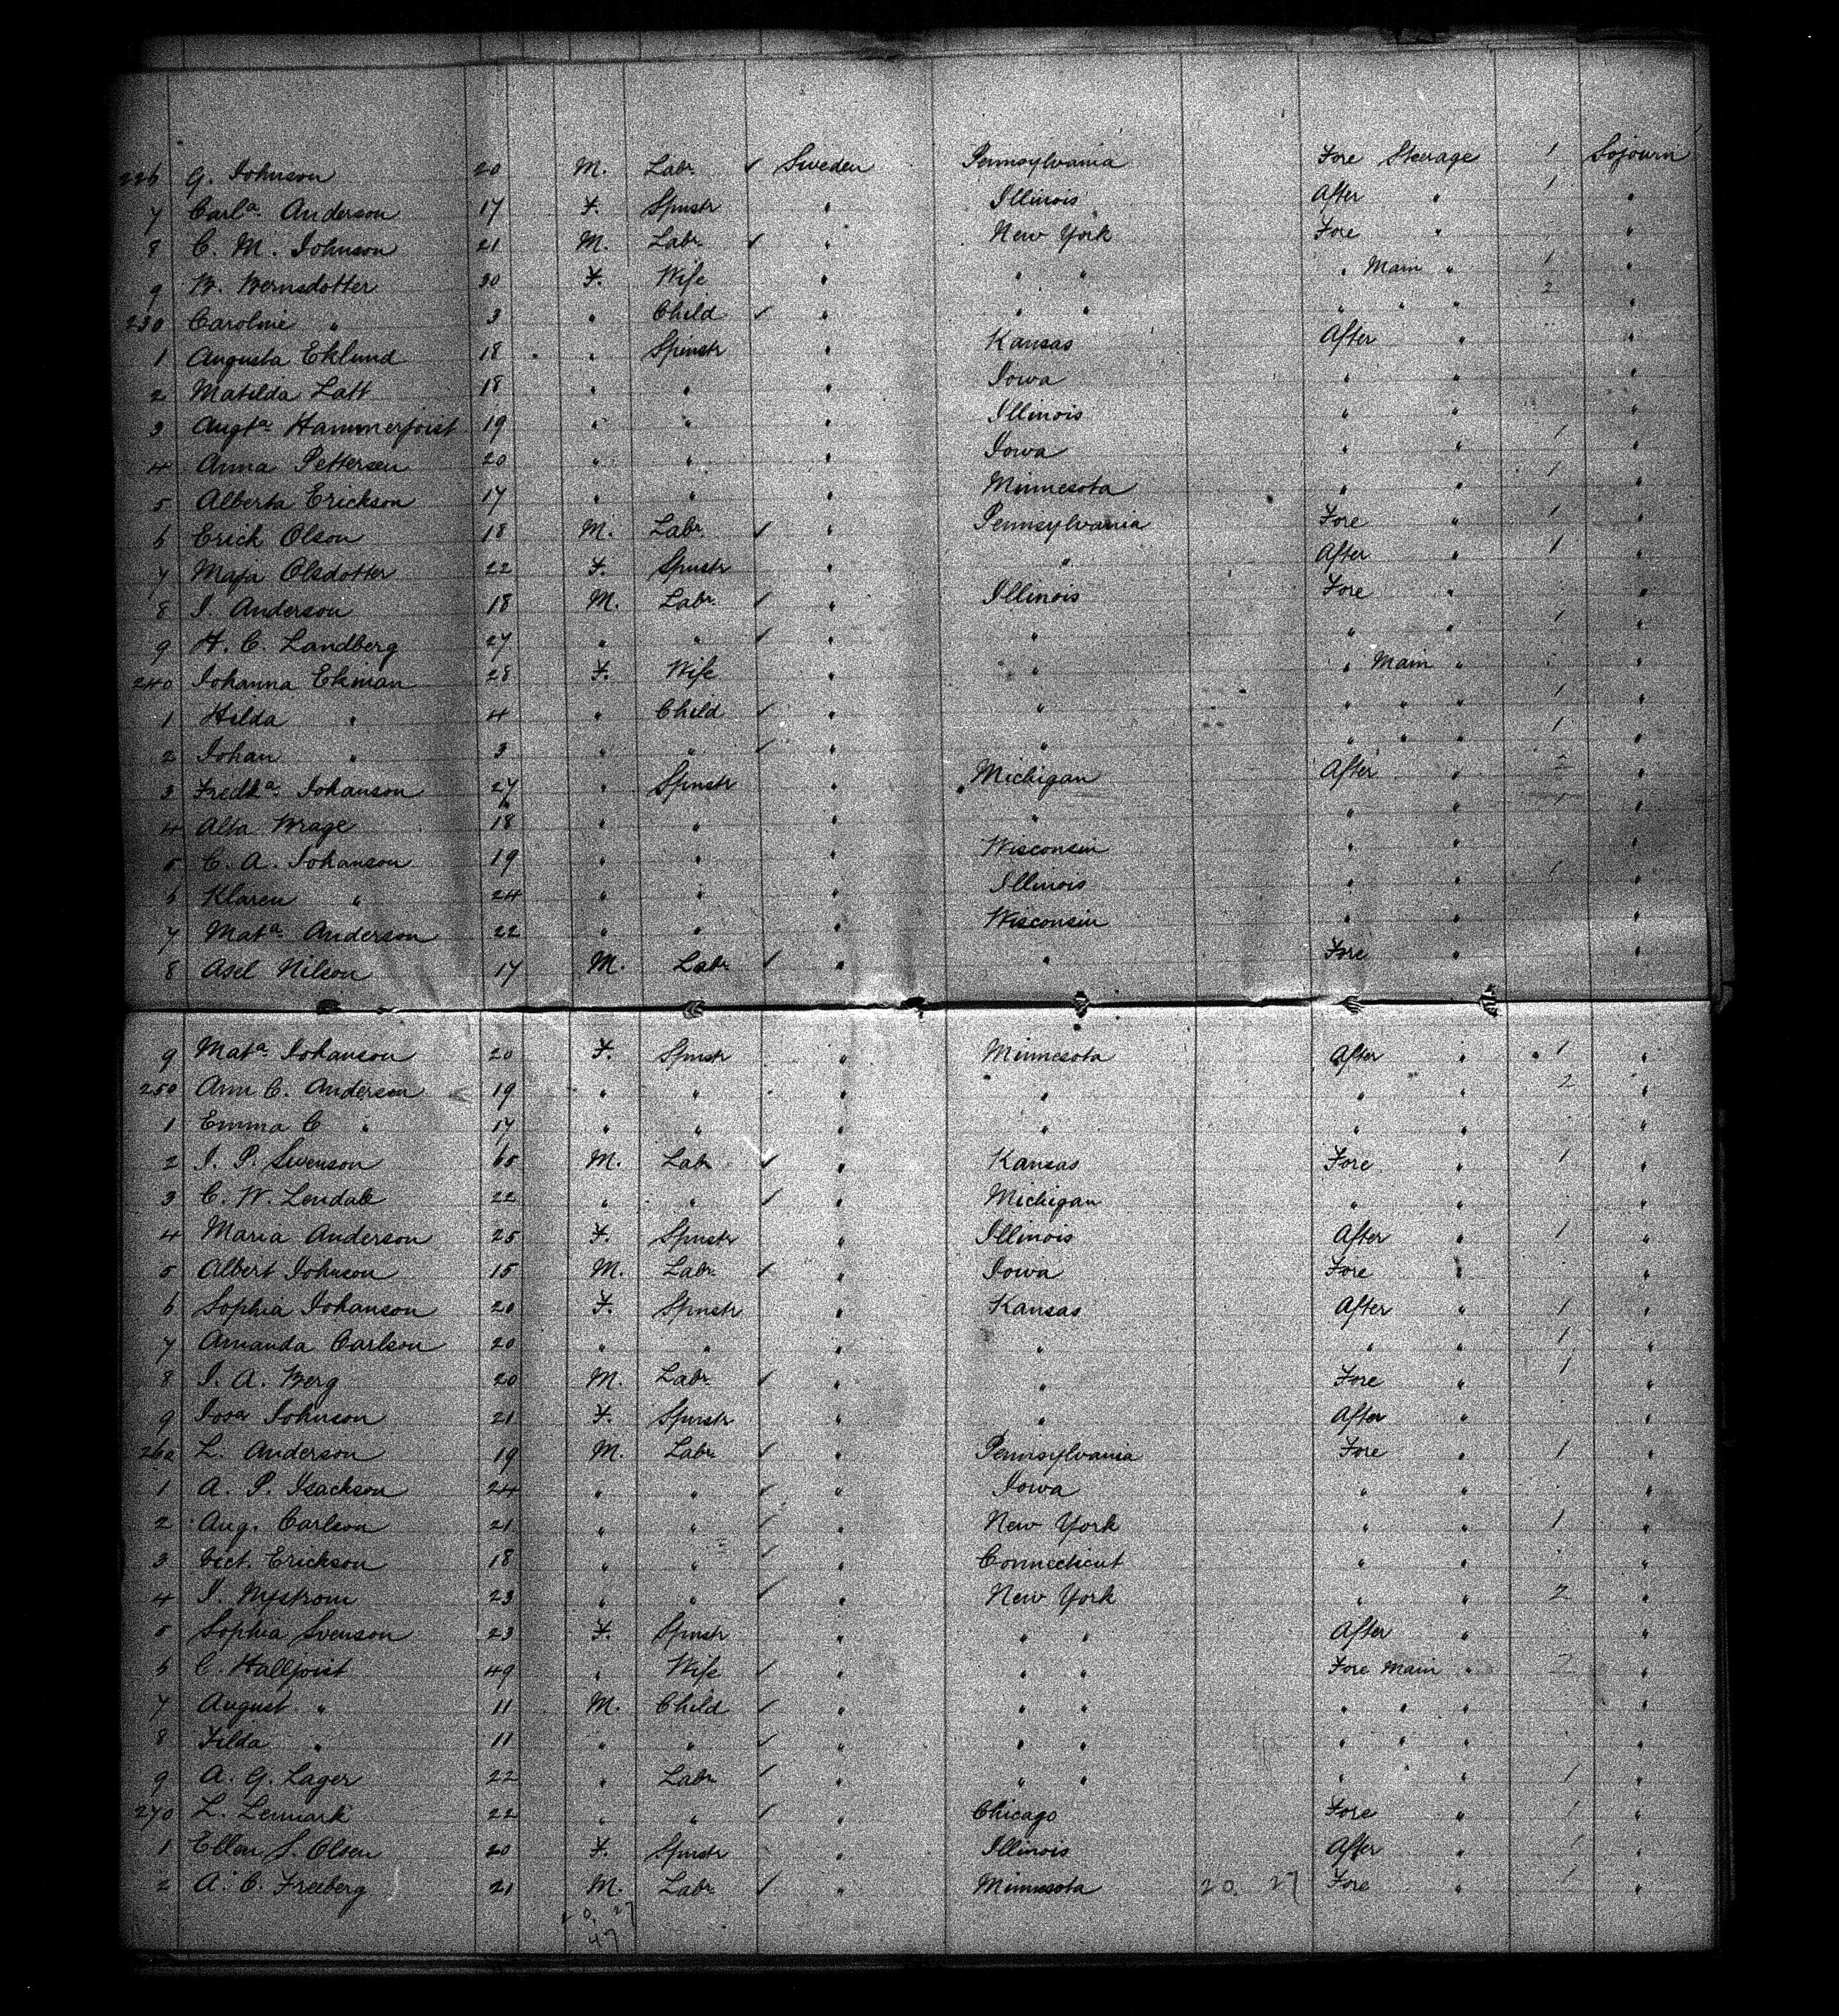 226 G. Johnson 20 M. Labr ✓ Sweden Pennsylvania Fore Steerage 1 Sojourn
7 Carl<sup>a</sup> Anderson 17 F. Spinstr " Illinois After " 1 "
8 C. M. Johnson 21 M. Labr ✓ " New York Fore " "
9 B. Bernsdotter 30 F. Wife " " " " Main " 1 "
230 Caroline " 3 " Child ✓ " " " " " " 2 "
1 Augusta Eklund 18 " Spinstr " Kansas After " "
2 Matilda Latt 18 " " " Iowa " " "
3 Augt<sup>a</sup> Hammerjoist 19 " " " Illinois " " "
4 Anna Pettersen 20 " " " Iowa " " 1 "
5 Alberta Erickson 17 " " " Minnesota " " 1 "
6 Erick Olson 18 M. Labr ✓ " Pennsylvania Fore " 1 "
7 Maja Olsdotter 22 F. Spinstr " " After " 1 "
8 I. Anderson 18 M. Labr ✓ " Illinois Fore " "
9 H. C. Landberg 27 " " ✓ " " " " 1 "
240 Johanna Ekman 28 F. Wife " " " Main " "
1 Hilda " 4 " Child ✓ " " " " " 1 "
2 Johan " 3 " " ✓ " " " " " 1 "
3 Fredk<sup>a</sup> Johanson 27 " Spinstr " Michigan After " "
4 Alta Brage 18 " " " " " " "
5 C. A. Johanson 19 " " " Wisconsin " " "
6 Klaren " 24 " " " Illinois " " 1 "
7 Mat<sup>a</sup> Anderson 22 " " " Wisconsin " " "
8 Asel Nilson 17 M. Labr ✓ " " Fore " "
9 Mat<sup>a</sup> Johanson 20 F. Spinstr " Minnesota After " 1 "
250 Ann C. Anderson 19 " " " " " " 2 "
1 Emma C " 17 " " " " " " "
2 I. P. Swenson 65 M. Labr ✓ " Kansas Fore " 1 "
3 C. W. Lendale 22 " " ✓ " Michigan " " "
4 Maria Anderson 25 F. Spinstr " Illinois After " 1 "
5 Albert Johnson 15 M. Labr ✓ " Iowa Fore " "
6 Sophia Johanson 20 F. Spinstr " Kansas After " 1 "
7 Amanda Carlson 20 " " " " " " 1 "
8 I. A. Berg 20 M. Labr ✓ " " Fore " 1 "
9 Iosa Johnson 21 F. Spinstr " " After " "
260 L. Anderson 19 M. Labr ✓ " Pennsylvania Fore " 1 "
1 A. P. Isackson 24 " " ✓ " Iowa " " "
2 Aug. Carlson 21 " " ✓ " New York " " 1 "
3 Vict. Erickson 18 " " ✓ " Connecticut " " "
4 I. Nystrom 23 " " ✓ " New York " " 2 "
5 Sophia Svenson 23 F. Spinstr " " " After " "
6 C. Halljoist 49 " Wife ✓ " " " Fore Main " 2 "
7 August " 11 M. Child ✓ " " " " " " "
8 Tilda " 11 " " ✓ " " " " " " "
9 A. G. Lager 22 " Labr ✓ " " " " " " 1 "
270 L. Lenmark 22 " " ✓ " Chicago Fore " 1 "
1 Ellen S. Olsen 20 F. Spinstr " Illinois After " 1 "
2 A. C. Freeberg 21 M. Labr ✓ " Minnesota 20. 27 Fore " 1 "
20, 27
47